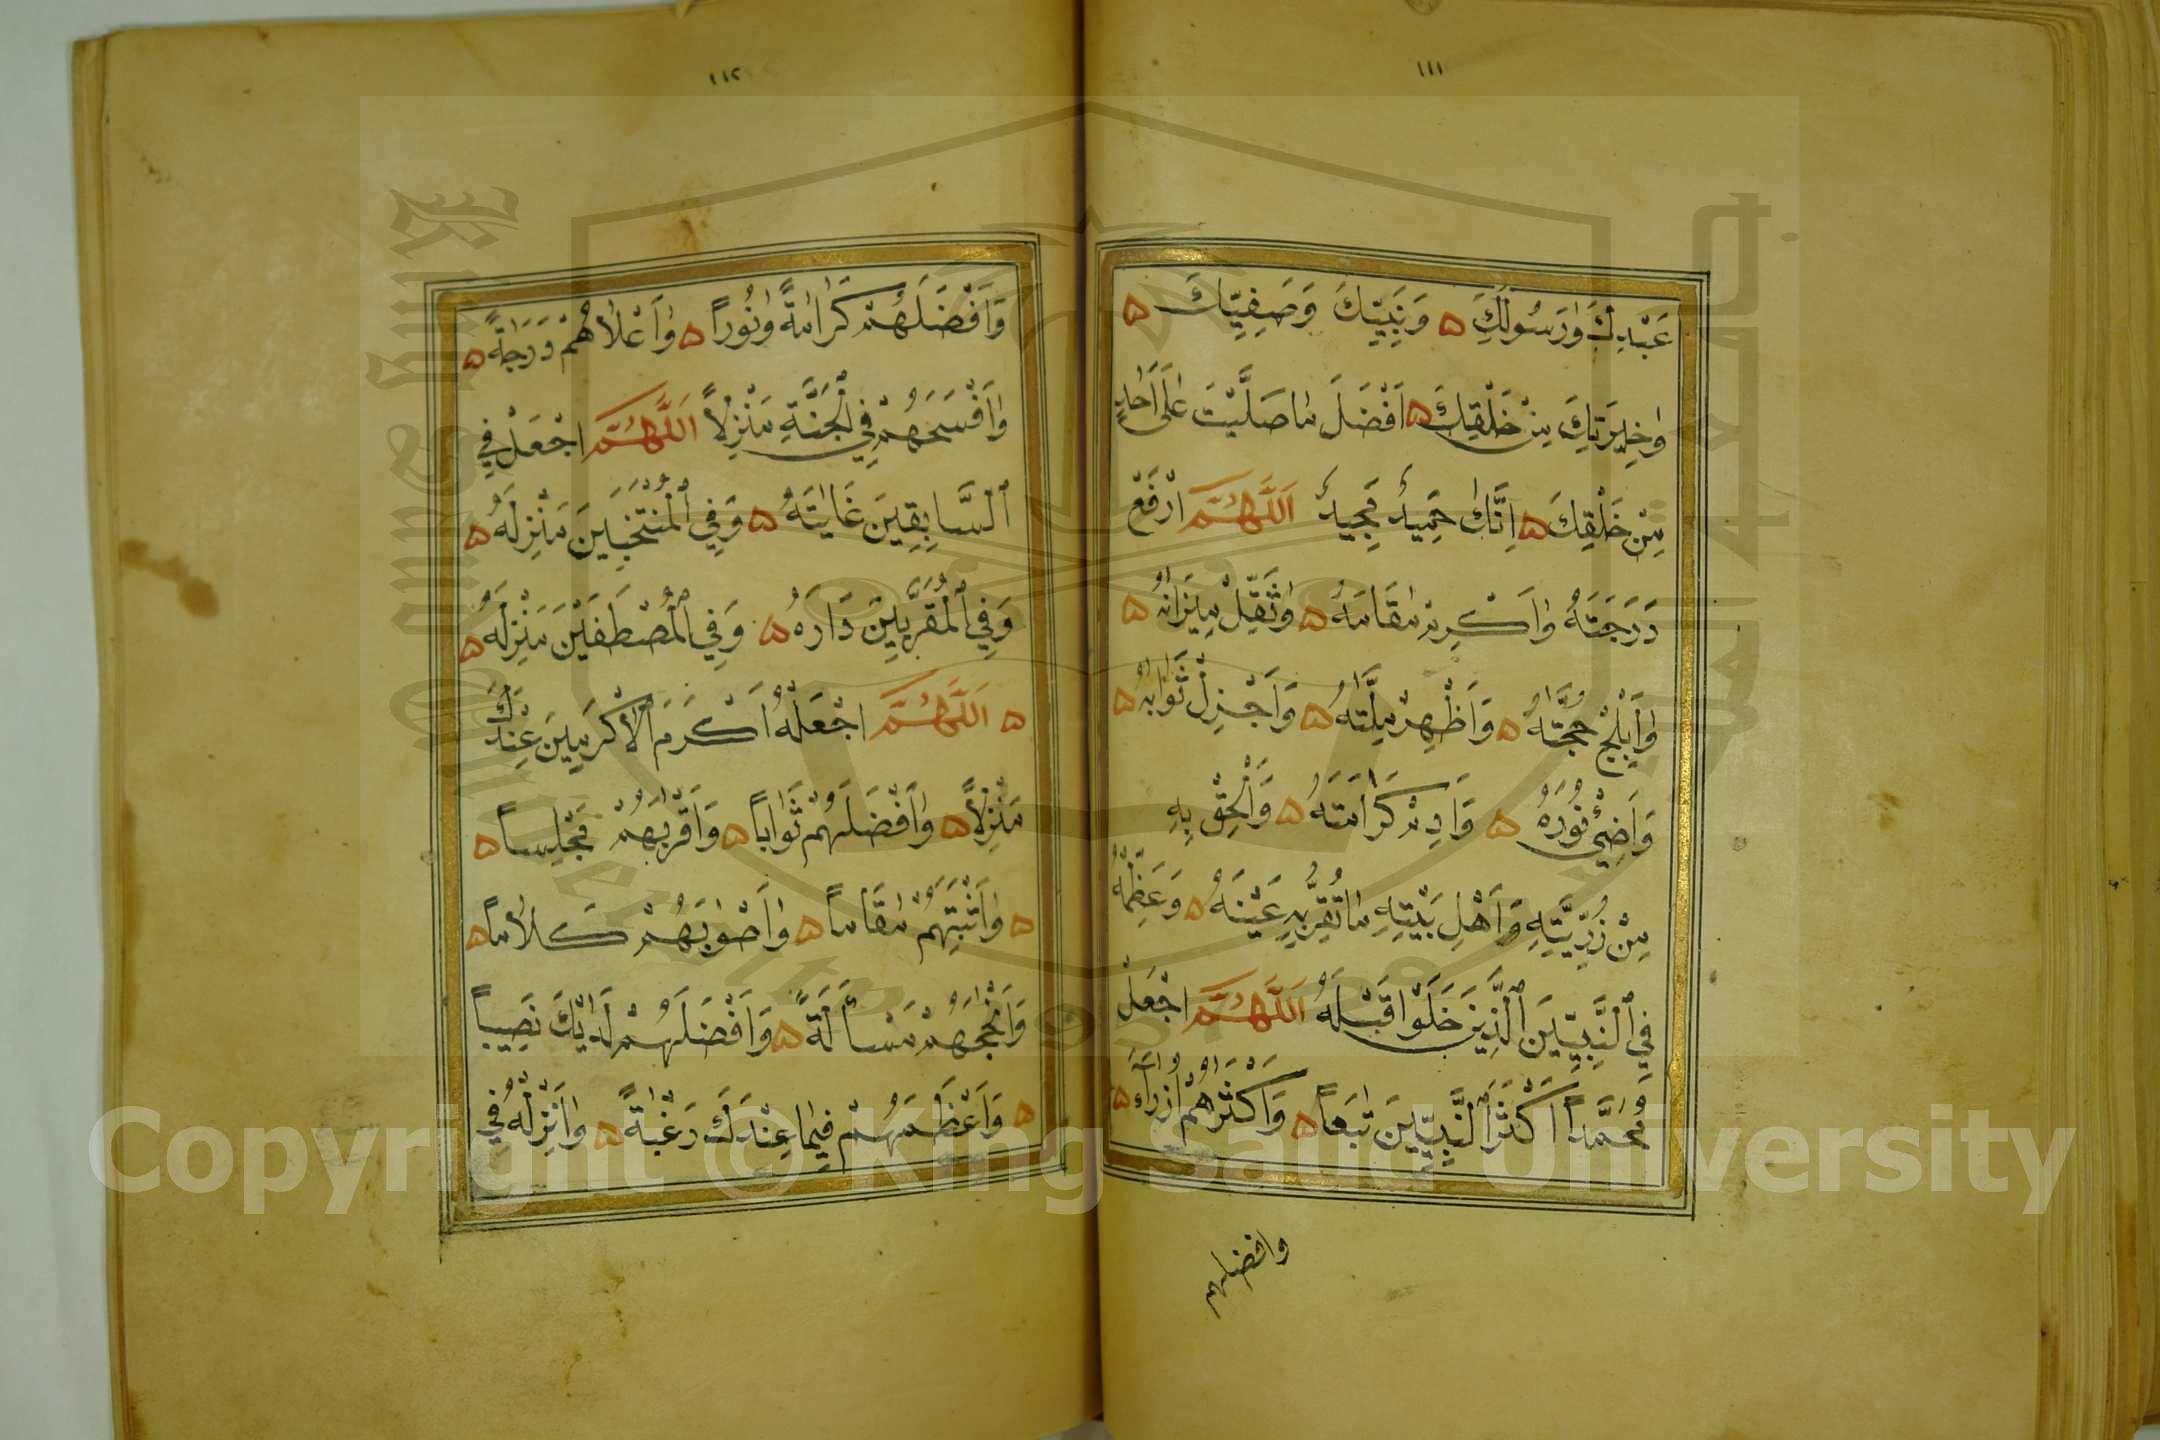 ١١١
عَبْدِكَ وَرَسُولِكَ ۵ وَنَبِيِّكَ وَصَفِيِّكَ ۵
وَخِيرَتِكَ مِنْ خَلْقِكَ ۵ اَفْضَلَ مَا صَلَّيْتَ عَلَى اَحَدٍ
مِنْ خَلْقِكَ ۵ اِنَّكَ حَمِيدٌ مَجِيدٌ اَللّٰهُمَّ ارْفَعْ
دَرَجَتَهُ وَاَكْرِمْ مَقَامَهُ ۵ وَثَقِّلْ مِيزَانَهُ ۵
وَاَبْلِجْ حُجَّتَهُ ۵ وَاَظْهِرْ مِلَّتَهُ ۵ وَاَجْزِلْ ثَوَابَهُ ۵
وَاَضِئْ نُورَهُ ۵ وَاَدِمْ كَرَامَتَهُ ۵ وَاَلْحِقْ بِهِ
مِنْ ذُرِّيَّتِهِ وَاَهْلِ بَيْتِهِ مَا تُقِرُّ بِهِ عَيْنَهُ ۵ وَعَظِّمْهُ
فِي النَّبِيِّينَ الَّذِينَ خَلَوْا قَبْلَهُ اَللّٰهُمَّ اجْعَلْ
مُحَمَّدًا اَكْثَرَ النَّبِيِّينَ تَبَعًا ۵ وَاَكْثَرَهُمْ اُزَرَاءَ ۵
وافضلهم
١١٢
وَاَفْضَلَهُمْ كَرَامَةً وَنُورًا ۵ وَاَعْلَاهُمْ دَرَجَةً ۵
وَاَفْسَحَهُمْ فِي الْجَنَّةِ مَنْزِلًا اَللّٰهُمَّ اجْعَلْ فِي
السَّابِقِينَ غَايَتَهُ ۵ وَفِي الْمُنْتَخَبِينَ مَنْزِلَهُ ۵
وَفِي الْمُقَرَّبِينَ دَارَهُ ۵ وَفِي الْمُصْطَفَيْنَ مَنْزِلَهُ ۵
۵ اَللّٰهُمَّ اجْعَلْهُ اَكْرَمَ الْاَكْرَمِينَ عِنْدَكَ
مَنْزِلًا ۵ وَاَفْضَلَهُمْ ثَوَابًا ۵ وَاَقْرَبَهُمْ مَجْلِسًا ۵
۵ وَاَثْبَتَهُمْ مَقَامًا ۵ وَاَصْوَبَهُمْ كَلَامًا ۵
وَاَنْجَحَهُمْ مَسْأَلَةً ۵ وَاَفْضَلَهُمْ لَدَيْكَ نَصِيبًا
۵ وَاَعْظَمَهُمْ فِيمَا عِنْدَكَ رَغْبَةً ۵ وَاَنْزِلْهُ فِي
Copyright © King Saud University